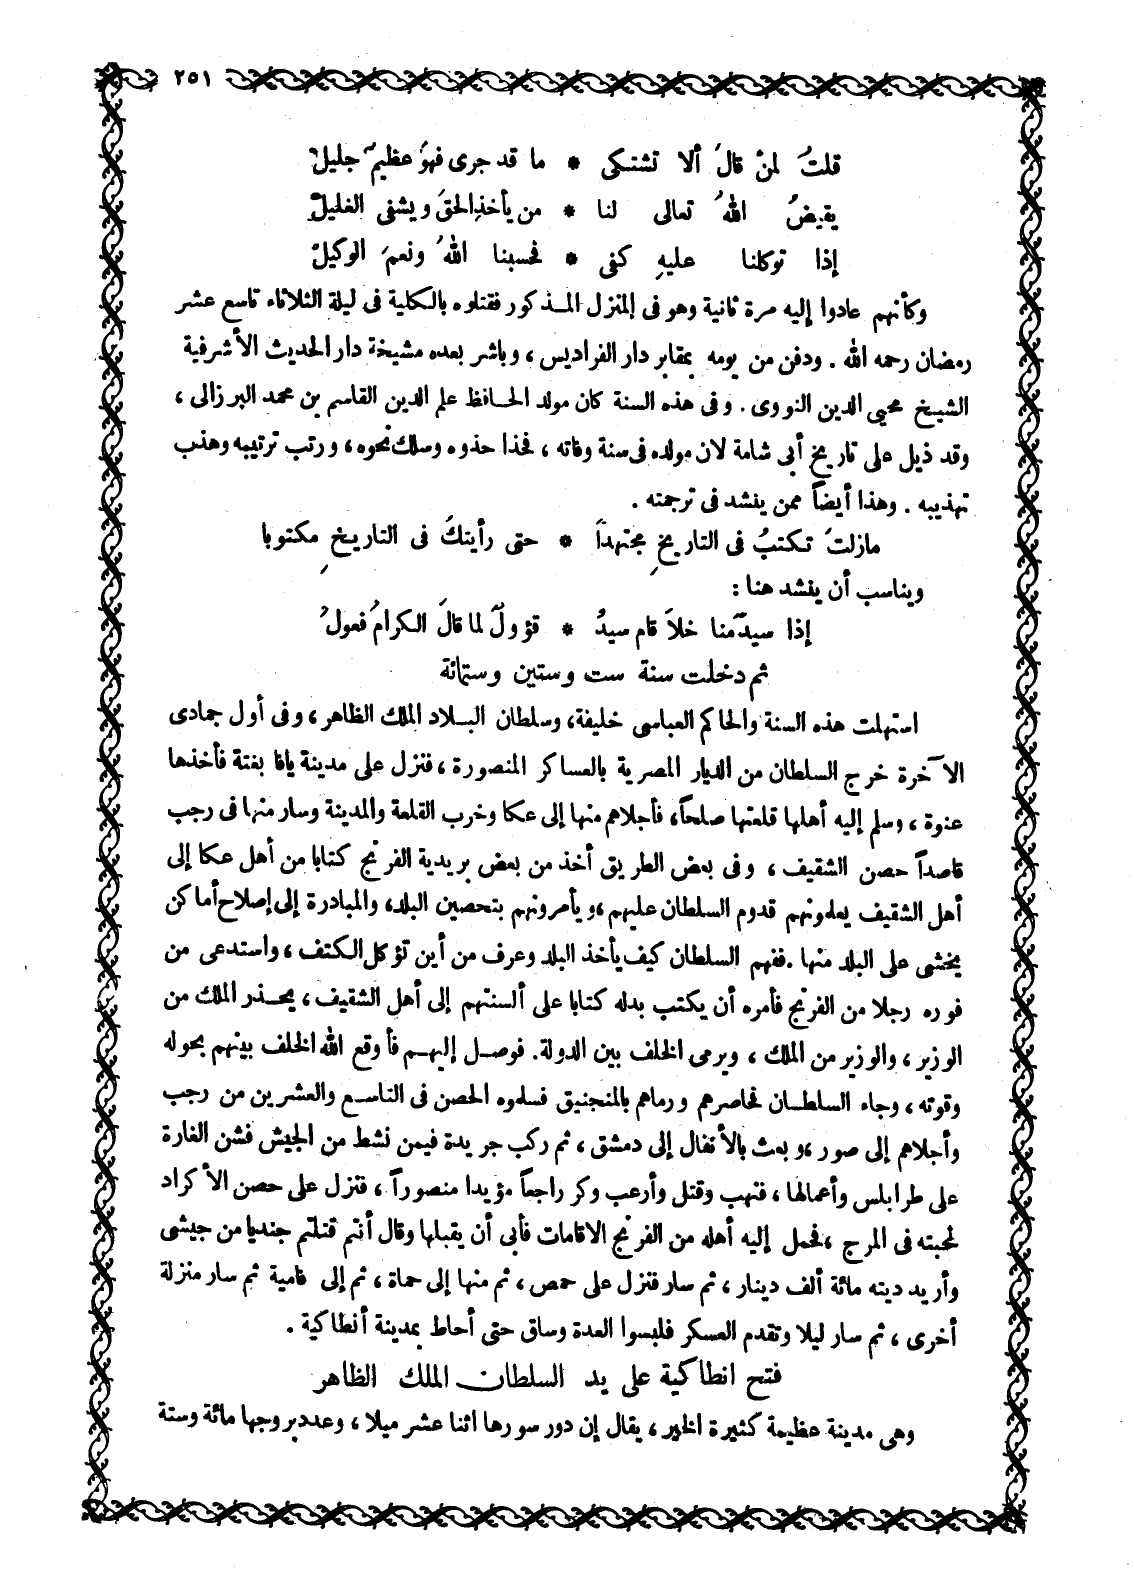 ٢٥١
قلتُ لمنْ قالَ ألا تشتكى * ما قد جرى فهوَ عظيمٌ جليلْ
يقيضُ اللهُ تعالى لنا * من يأخذِ الحقَ ويشفى الغليلْ
إذا توكلنا عليهِ كفى * فحسبنا اللهُ ونعمَ الوكيلْ
وكأنهم عادوا إليه مرة ثانية وهو فى المنزل المذكور فقتلوه بالكلية فى ليلة الثلاثاء تاسع عشر
رمضان رحمه الله . ودفن من يومه بمقابر دار الفراديس ، وباشر بعده مشيخة دار الحديث الأشرفية
الشيخ محيى الدين النووى . وفى هذه السنة كان مولد الحافظ علم الدين القاسم بن محمد البرزالى ،
وقد ذيل على تاريخ أبى شامة لان مولده فى سنة وفاته ، فحذا حذوه وسلك نحوه ، ورتب ترتيبه وهذب
تهذيبه . وهذا أيضاً ممن ينشد فى ترجمته .
مازلتَ تكتبُ فى التاريخِ مجتهداً * حتى رأيتكَ فى التاريخِ مكتوبا
ويناسب أن ينشد هنا :
إذا سيدٌ منا خلاَ قام سيدُ * قؤولٌ لما قالَ الكرامُ فعولُ
ثم دخلت سنة ست وستين وستمائة
استهلت هذه السنة والحاكم العباسى خليفة، وسلطان البلاد الملك الظاهر ، وفى أول جمادى
الآخرة خرج السلطان من الديار المصرية بالعساكر المنصورة ، فنزل على مدينة يافا بغتة فأخذها
عنوة ، وسلم إليه أهلها قلعتها صلحاً، فأجلاهم منها إلى عكا وخرب القلعة والمدينة وسار منها فى رجب
قاصداً حصن الشقيف ، وفى بعض الطريق أخذ من بعض بريدية الفرنج كتابا من أهل عكا إلى
أهل الشقيف يعلمونهم قدوم السلطان عليهم ،ويأمرونهم بتحصين البلد، والمبادرة إلى إصلاح أماكن
يخشى على البلد منها .ففهم السلطان كيف يأخذ البلد وعرف من أين تؤكل الكتف ، واستدعى من
فوره رجلا من الفرنج فأمره أن يكتب بدله كتابا على ألسنتهم إلى أهل الشقيف ، يحذر الملك من
الوزير ، والوزير من الملك ، ويرمى الخلف بين الدولة. فوصل إليهم فأوقع الله الخلف بينهم بحوله
وقوته ، وجاء السلطان فحاصرهم ورماهم بالمنجنيق فسلموه الحصن فى التاسع والعشرين من رجب
وأجلاهم إلى صور ،وبعث بالأثقال إلى دمشق ، ثم ركب جريدة فيمن نشط من الجيش فشن الغارة
على طرابلس وأعمالها ، فنهب وقتل وأرعب وكر راجعاً مؤيدا منصوراً ، فنزل على حصن الأكراد
لمحبته فى المرج ،فحمل إليه أهله من الفرنج الاقامات فأبى أن يقبلها وقال أنتم قتلتم جنديا من جيشى
وأريد ديته مائة ألف دينار ، ثم سار فنزل على حمص ، ثم منها إلى حماة ، ثم إلى فامية ثم سار منزلة
أخرى ، ثم سار ليلا وتقدم العسكر فلبسوا العدة وساق حتى أحاط بمدينة أنطاكية .
فتح انطاكية على يد السلطان الملك الظاهر
وهى مدينة عظيمة كثيرة الخير ، يقال إن دور سورها اثنا عشر ميلا ، وعدد بروجها مائة وستة